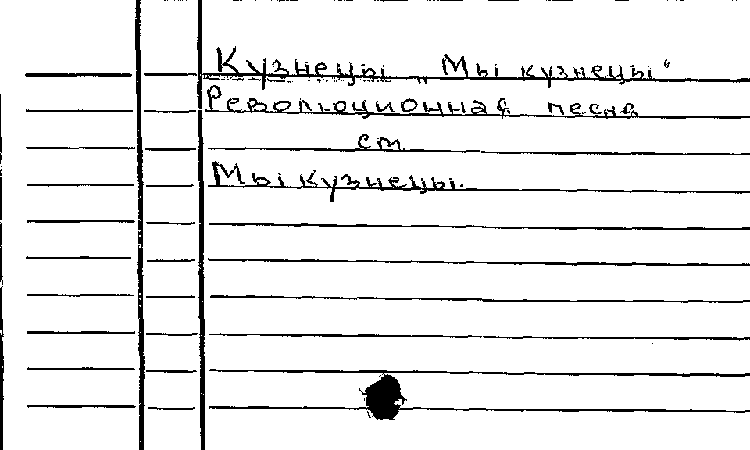 Кузнецы „Мы кузнецы“
Революционная песня
ст.
Мы кузнецы.